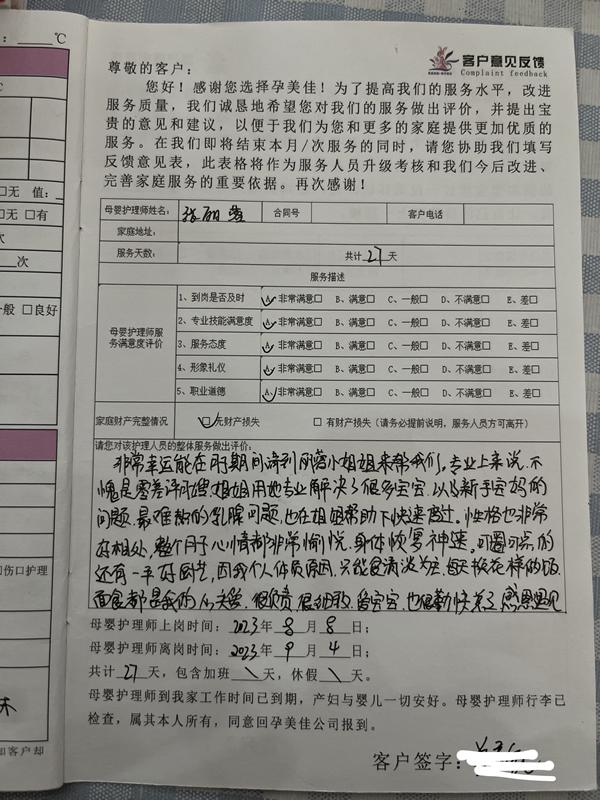 ：____℃
客户意见反馈
Complaint feedback
尊敬的客户：
您好！感谢您选择孕美佳！为了提高我们的服务水平，改进
服务质量，我们诚恳地希望您对我们的服务做出评价，并提出宝
贵的意见和建议，以便于我们为您和更多的家庭提供更加优质的
服务。在我们即将结束本月/次服务的同时，请您协助我们填写
反馈意见表，此表格将作为服务人员升级考核和我们今后改进、
完善家庭服务的重要依据。再次感谢！
母婴护理师姓名： 张丽 合同号 客户电话
家庭地址：
服务天数： 共计27天
服务描述
母婴护理师服务满意度评价
1、到岗是否及时 A、非常满意□ B、满意□ C、一般□ D、不满意□ E、差□
2、专业技能满意度 A、非常满意□ B、满意□ C、一般□ D、不满意□ E、差□
3、服务态度 A、非常满意□ B、满意□ C、一般□ D、不满意□ E、差□
4、形象礼仪 A、非常满意□ B、满意□ C、一般□ D、不满意□ E、差□
5、职业道德 A、非常满意□ B、满意□ C、一般□ D、不满意□ E、差□
家庭财产完整情况 ☑无财产损失 □有财产损失（请务必提前说明，服务人员方可离开）
请您对该护理人员的整体服务做出评价：
非常幸运能在月期间请到丽小姐姐来帮我们。专业上来说，不
愧是零差评月嫂，姐姐用她专业解决了很多宝宝，以及新手宝妈的
问题。最难熬的乳腺问题，也在姐姐帮助下快速度过。性格也非常
好相处，整个月子心情都非常愉悦，身体恢复神速。可圈可点的
还有一手好厨艺，因我个人体质原因，只能食清淡为主，每天换花样做饭
面食都是我的心头爱。很负责，很细致，爱宝宝，也很勤快 感恩遇见
母婴护理师上岗时间：2023年8月8日；
母婴护理师离岗时间：2023年9月4日；
共计27天，包含加班\天，休假\天。
母婴护理师到我家工作时间已到期，产妇与婴儿一切安好。母婴护理师行李已
检查，属其本人所有，同意回孕美佳公司报到。
客户签字：
□无 值：
□无 □有
次
次
般 □良好
伤口护理
如客户却